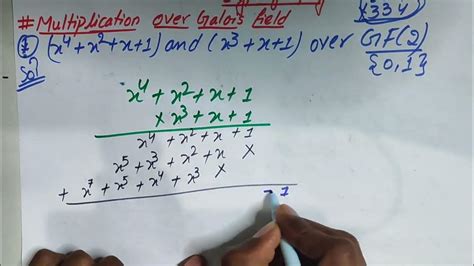 x334)
# Multiplication over Galois field
① (x⁴+x²+x+1) and (x³+x+1) over GF(2)
Sol? {0,1}
x⁴+x²+x+1
× x³+x+1
x⁴+x²+x+1
x⁵+x³+x²+x ×
+ x⁷+x⁵+x⁴+x³ ×
1